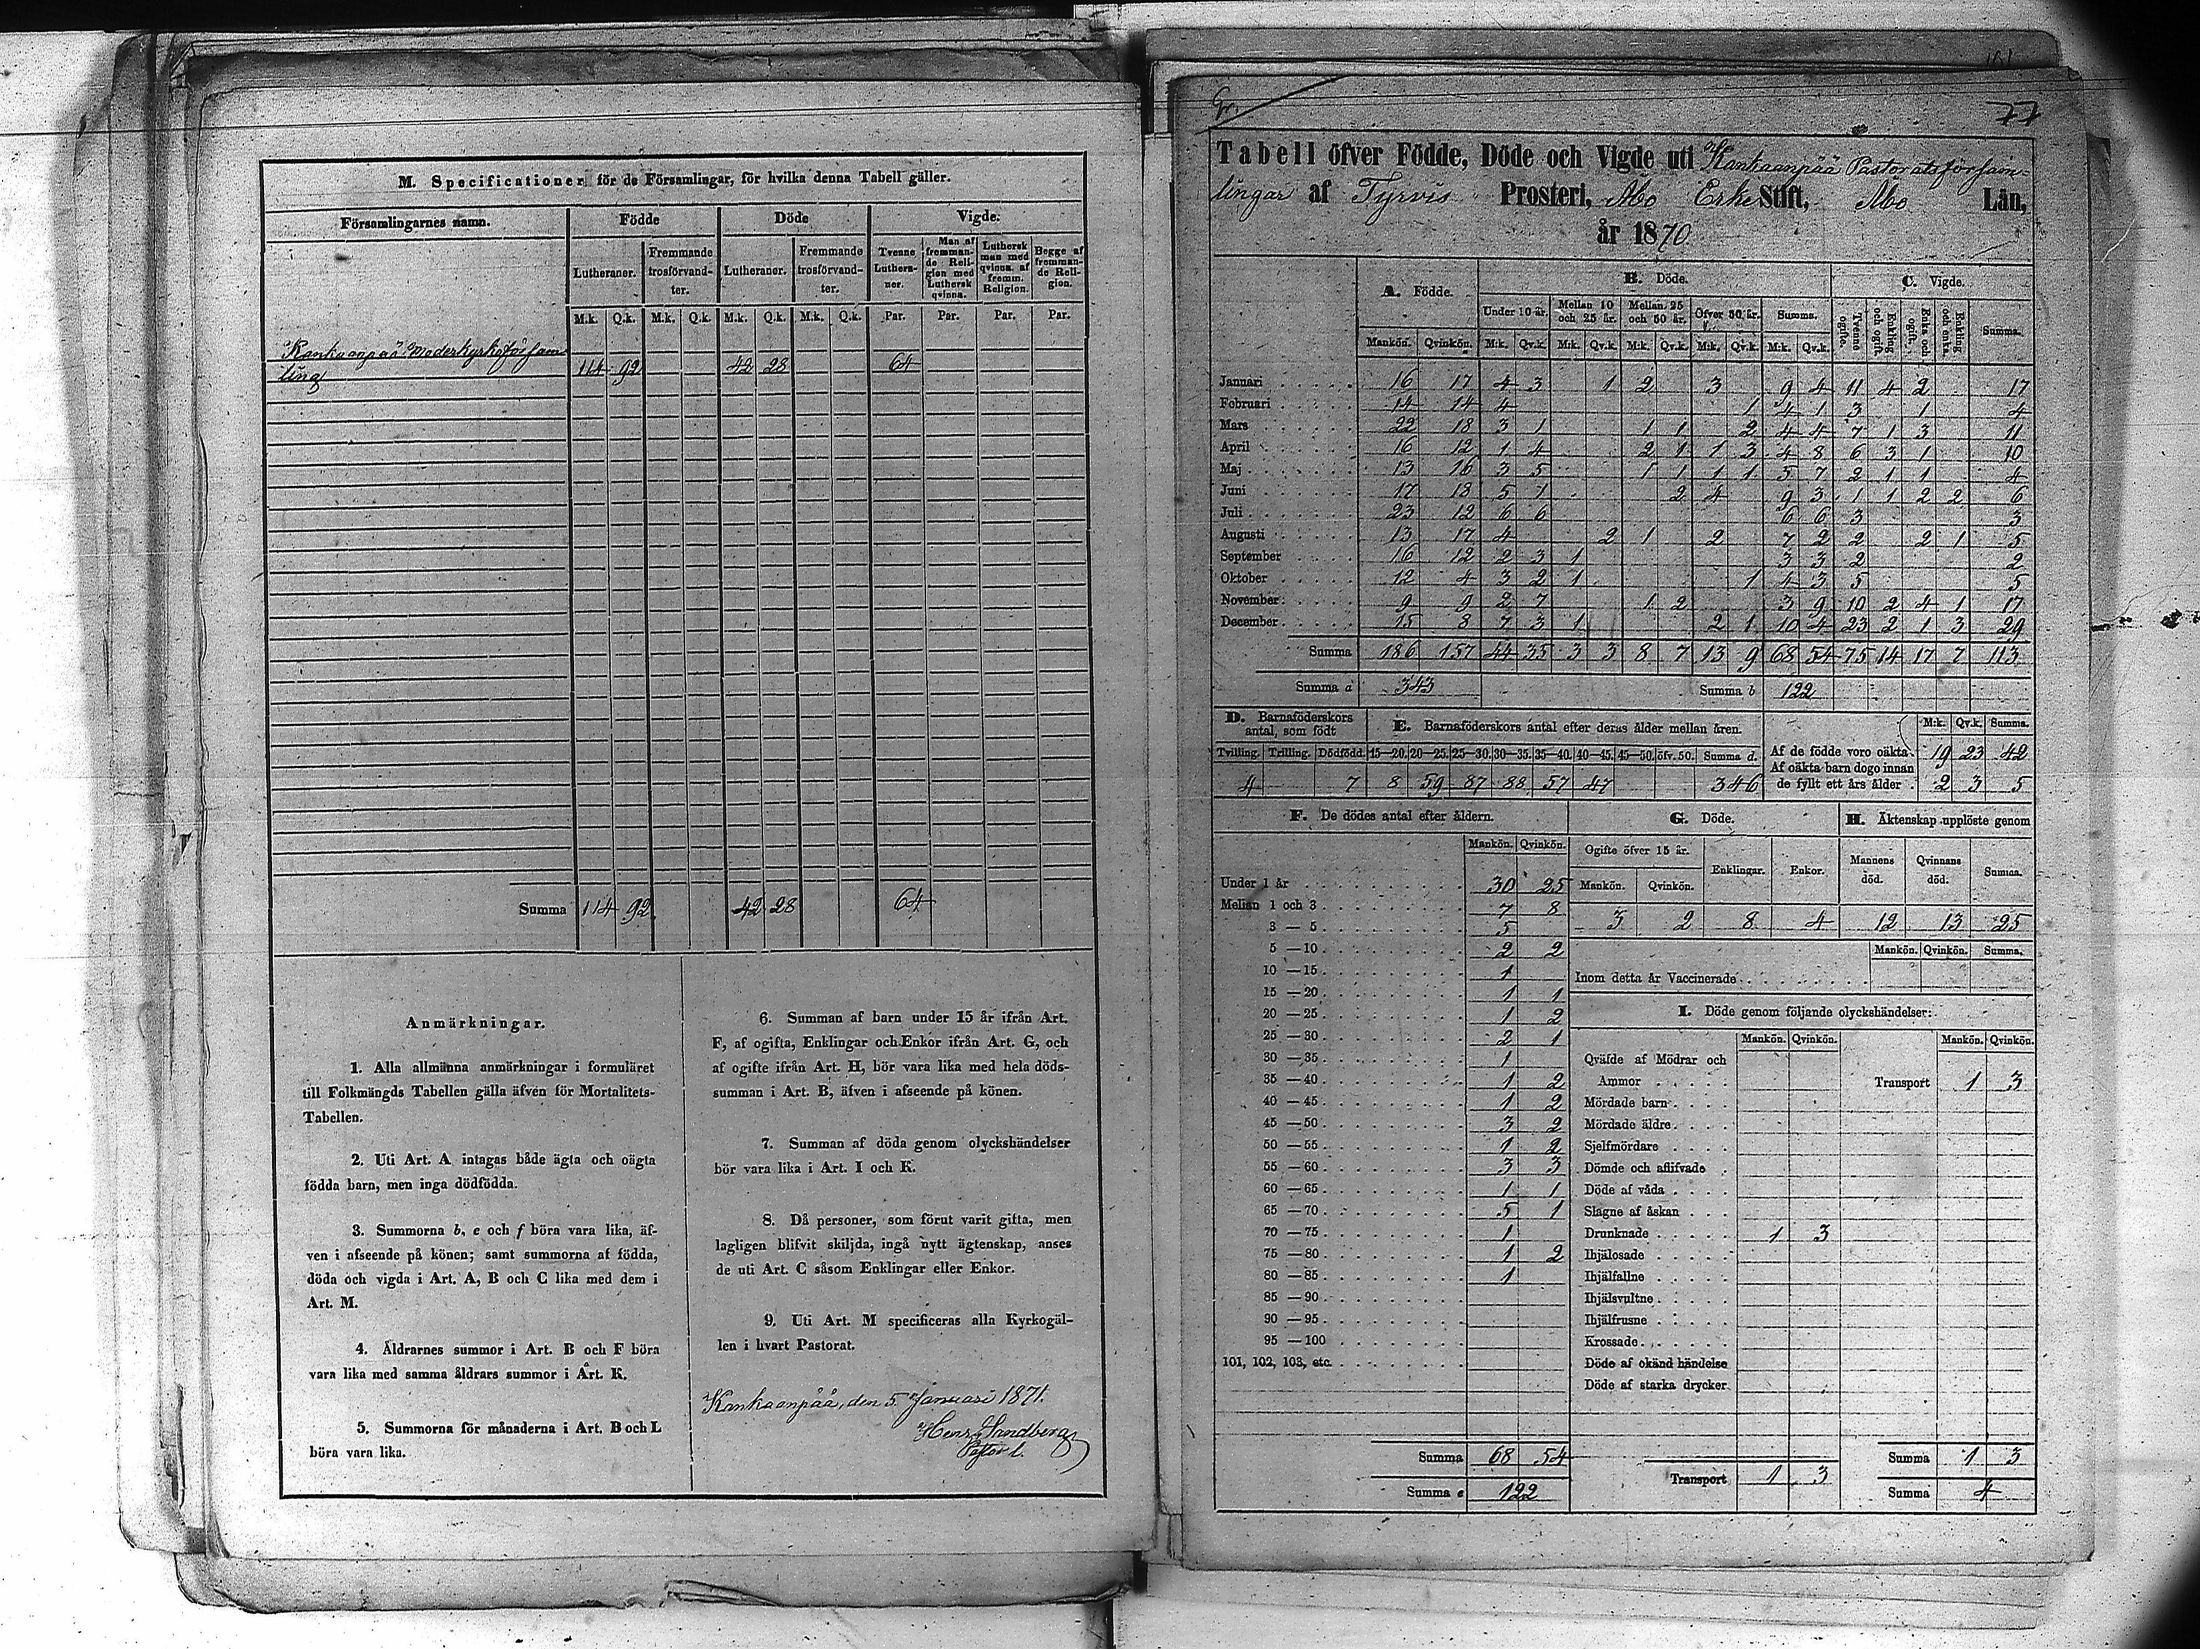 M. Specificationer för de Församlingar, för hvilka denna Tabell gäller.
Församlingarnes namn. Födde Döde Vigde.
Lutheraner. Fremmande trosförvandter. Lutheraner. Fremmande trosförvandter. Tvenne Lutheraner. Man af fremmande Religion med Luthersk qvinna. Luthersk man med qvinna af fremm. Religion. Begge af fremmande Religion.
M.k. Q.k. M.k. Q.k. M.k. Q.k. M.k. Q.k. Par. Par. Par. Par.
Kankaanpää Moderkyrkoförsam
ling 114 92 42 28 64
Summa 114 92 42 28 64
Anmärkningar.
1. Alla allmänna anmärkningar i formuläret
till Folkmängds Tabellen gälla äfven för Mortalitets-
Tabellen.
2. Uti Art. A intagas både ägta och oägta
födda barn, men inga dödfödda.
3. Summorna b, e och f böra vara lika, äf-
ven i afseende på könen; samt summorna af födda,
döda och vigda i Art. A, B och C lika med dem i
Art. M.
4. Åldrarnes summor i Art. B och F böra
vara lika med samma åldrars summor i Art. K.
5. Summorna för månaderna i Art. B och L
böra vara lika.
6. Summan af barn under 15 år ifrån Art.
F, af ogifta, Enklingar och Enkor ifrån Art. G, och
af ogifte ifrån Art. H, bör vara lika med hela döds-
summan i Art. B, äfven i afseende på könen.
7. Summan af döda genom olyckshändelser
bör vara lika i Art. I och K.
8. Då personer, som förut varit gifta, men
lagligen blifvit skiljda, ingå nytt ägtenskap, anses
de uti Art. C såsom Enklingar eller Enkor.
9. Uti Art. M specificeras alla Kyrkogäl-
len i hvart Pastorat.
Kankaanpää, den 5 Januari 1871.
Henr. Sandberg
Pastor l.
77
Tabell öfver Födde, Döde och Vigde uti Kankaanpää Pastoratsförsam-
lingar af Tyrvis Prosteri, Åbo Erke Stift, Åbo Län,
år 1870.
A. Födde. B. Döde. C. Vigde.
Under 10 år. Mellan 10 och 25 år. Mellan 25 och 50 år. Öfver 50 år. Summa. Tvenne ogifte. Enkling och ogift. Enka och ogift. Enkling och enka. Summa.
Mankön. Qvinkön. M:k. Qv.k. M:k. Qv.k. M:k. Qv.k. M:k. Qv.k. M:k. Qv.k.
Januari 16 17 4 3 1 2 3 9 4 11 4 2 17
Februari 14 14 4 1 4 1 3 1 4
Mars 22 18 3 1 1 1 2 4 4 7 1 3 11
April 16 12 1 4 2 1 1 3 4 8 6 3 1 10
Maj 13 16 3 5 1 1 1 1 5 7 2 1 1 4
Juni 17 18 5 1 2 4 9 3 1 1 2 2 6
Juli 23 12 6 6 6 6 3 3
Augusti 13 17 4 2 1 2 7 2 2 2 1 5
September 16 12 2 3 1 3 3 2 2
Oktober 12 4 3 2 1 1 4 3 5 5
November 9 9 2 7 1 2 3 9 10 2 4 1 17
December 15 8 7 3 1 2 1 10 4 23 2 1 3 29
Summa 186 157 44 35 3 3 8 7 13 9 68 54 75 14 17 7 113
Summa a 343 Summa b 122
D. Barnaföderskors antal, som födt E. Barnaföderskors antal efter deras ålder mellan åren. M:k. Qv.k. Summa.
Tvilling. Trilling. Dödfödd. 15—20. 20—25. 25—30. 30—35. 35—40. 40—45. 45—50. öfv. 50. Summa d.
4 7 8 59 87 88 57 47 346
Af de födde voro oäkta 19 23 42
Af oäkta barn dogo innan
de fyllt ett års ålder 2 3 5
F. De dödes antal efter åldern.
Mankön. Qvinkön.
Under 1 år 30 25
Mellan 1 och 3 7 8
3 — 5 5
5 — 10 2 2
10 — 15 1
15 — 20 1 1
20 — 25 1 2
25 — 30 2 1
30 — 35 1
35 — 40 1 2
40 — 45 1 2
45 — 50 3 2
50 — 55 1 2
55 — 60 3 3
60 — 65 1 1
65 — 70 5 1
70 — 75 1
75 — 80 1 2
80 — 85 1
85 — 90
90 — 95
95 — 100
101, 102, 103, etc.
Summa 68 54
Summa e 122
G. Döde.
Ogifte öfver 15 år. Enklingar. Enkor.
Mankön. Qvinkön.
3 2 8 4
H. Äktenskap upplöste genom
Mannens död. Qvinnans död. Summa.
12 13 25
Mankön. Qvinkön. Summa.
Inom detta år Vaccinerade
I. Döde genom följande olyckshändelser:
Mankön. Qvinkön. Mankön. Qvinkön.
Qväfde af Mödrar och
Ammor Transport 1 3
Mördade barn
Mördade äldre
Sjelfmördare
Dömde och aflifvade
Döde af våda
Slagne af åskan
Drunknade 1 3
Ihjälosade
Ihjälfallne
Ihjälsvultne
Ihjälfrusne
Krossade
Döde af okänd händelse
Döde af starka drycker
Summa 1 3
Transport 1 3
Summa 4